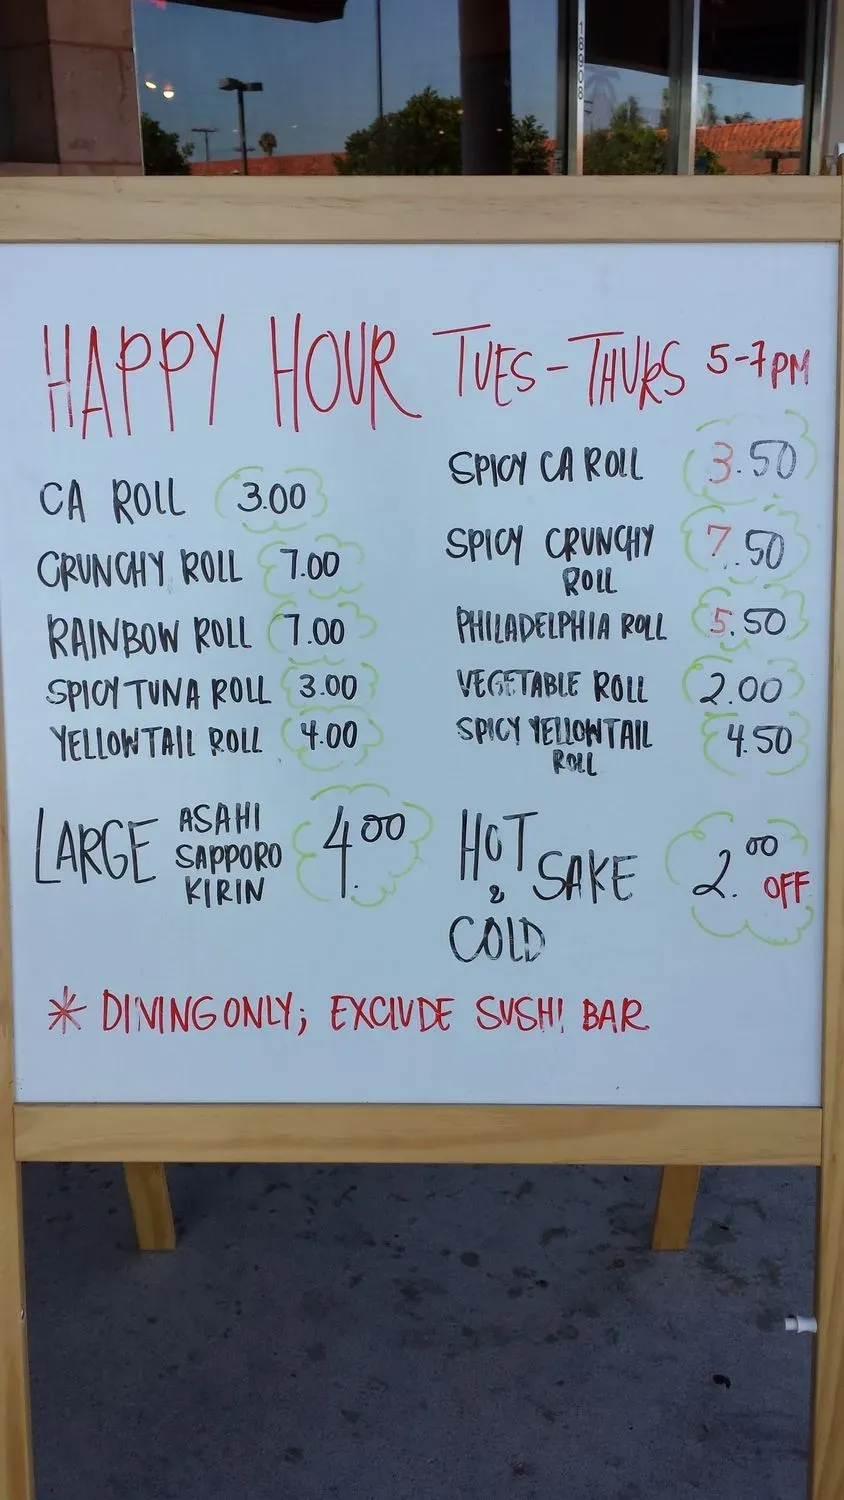 18908
HAPPY HOUR TUES-THURS 5-7PM
CA ROLL 3.00
CRUNCHY ROLL 7.00
RAINBOW ROLL 7.00
SPICY TUNA ROLL 3.00
YELLOWTAIL ROLL 4.00
SPICY CA ROLL 3.50
SPICY CRUNCHY
ROLL 7.50
PHILADELPHIA ROLL 5.50
VEGETABLE ROLL 2.00
SPICY YELLOWTAIL
ROLL 4.50
LARGE ASAHI
SAPPORO
KIRIN 4.00
HOT
& SAKE 2.00 OFF
COLD
* DINING ONLY; EXCLUDE SUSHI BAR